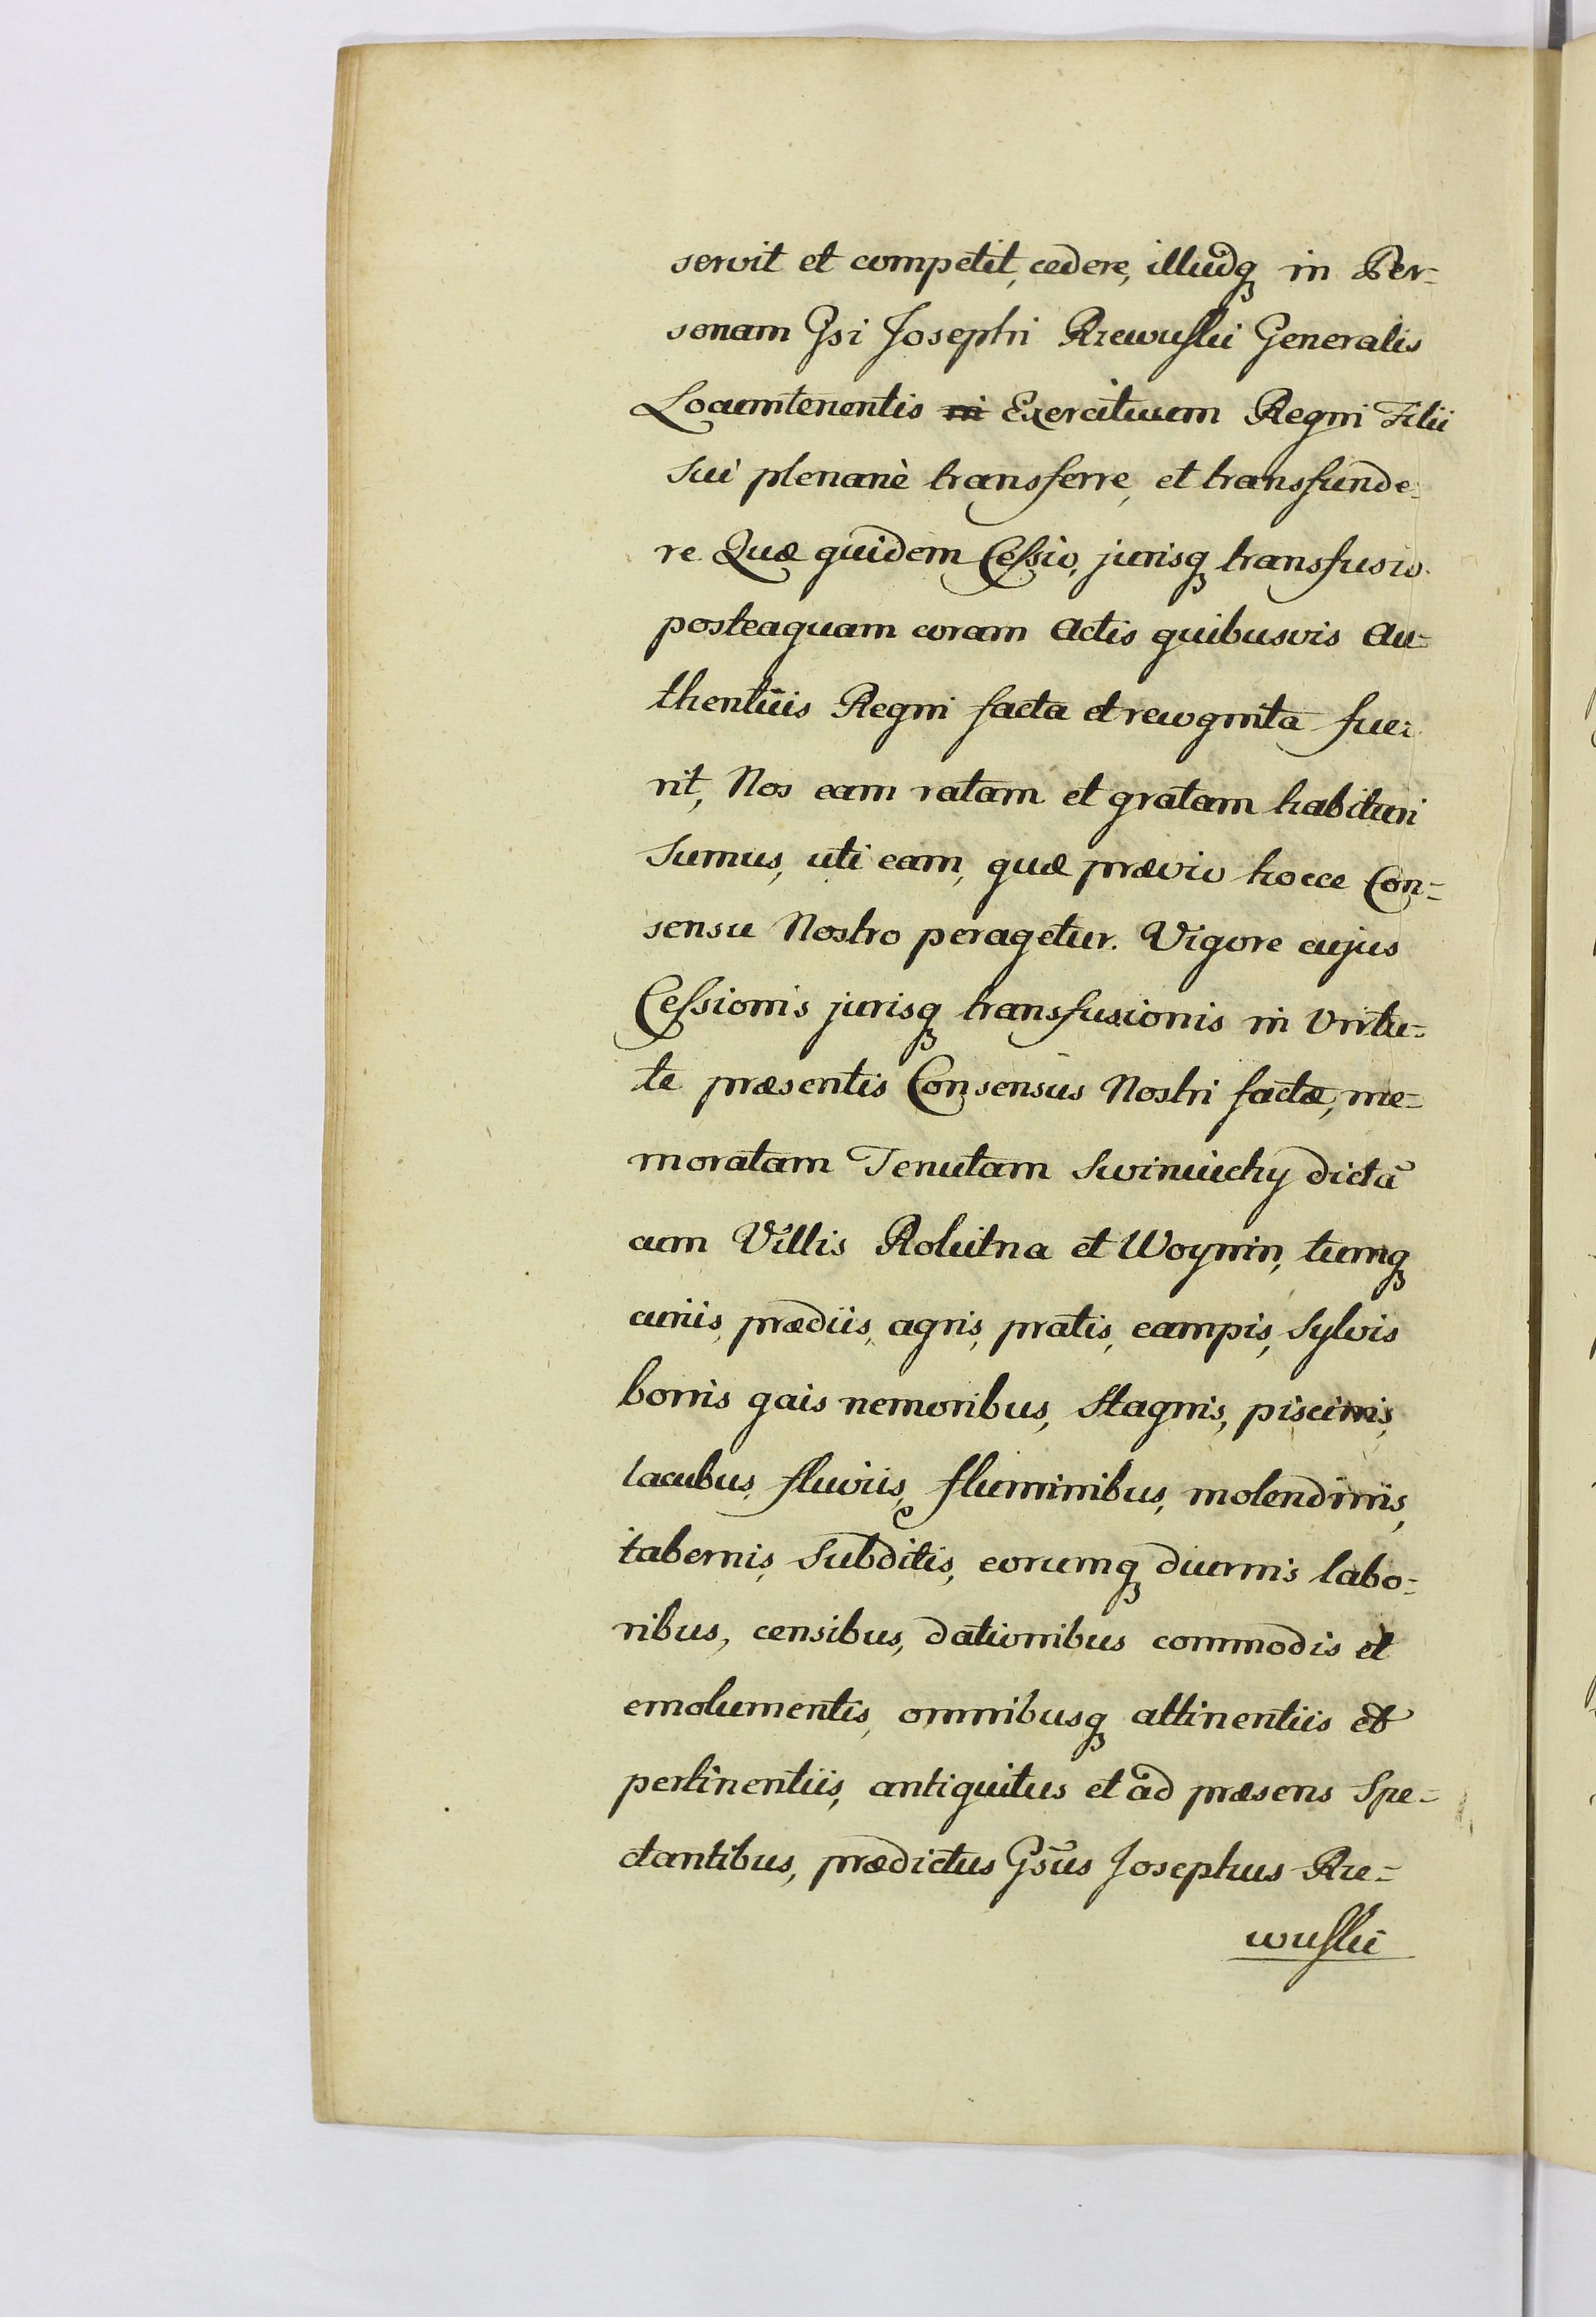 servit et competit, cedere, illudq in Per-
sonam Gsi Josephi Rzewuski Generalis
Locumtenentis in Exercituum Regni Filii
Sui plenariè transferre, et transfunde-
re. Quæ quidem Cessio, jurisq transfusio
posteaquam coram Actis quibusvis Au-
thenticis Regni facta et recognita fue-
rit, Nos eam ratam et gratam habituri
Sumus, uti eam, quæ prævio hocce Con-
sensu Nostro peragetur. Vigore cujus
Cessionis jurisq transfusionis in Virtu-
te præsentis Consensûs Nostri factæ, me-
moratam Tenutam Swiniuchy dictã
cum Villis Rokitna et Woynin, tumq
curiis, prædiis, agris, pratis, campis, Sylvis
borris gais nemoribus, Stagnis, piscinis,
lacubus, fluviis, fluminibus, molendinis,
tabernis, Subditis, eorumq diurnis labo-
ribus, censibus, dationibus commodis et
emolumentis, omnibusq attinentiis et
pertinentiis, antiquitus et ad præsens Spe-
ctantibus, prædictus Gsus Josephus Rze-
wuski